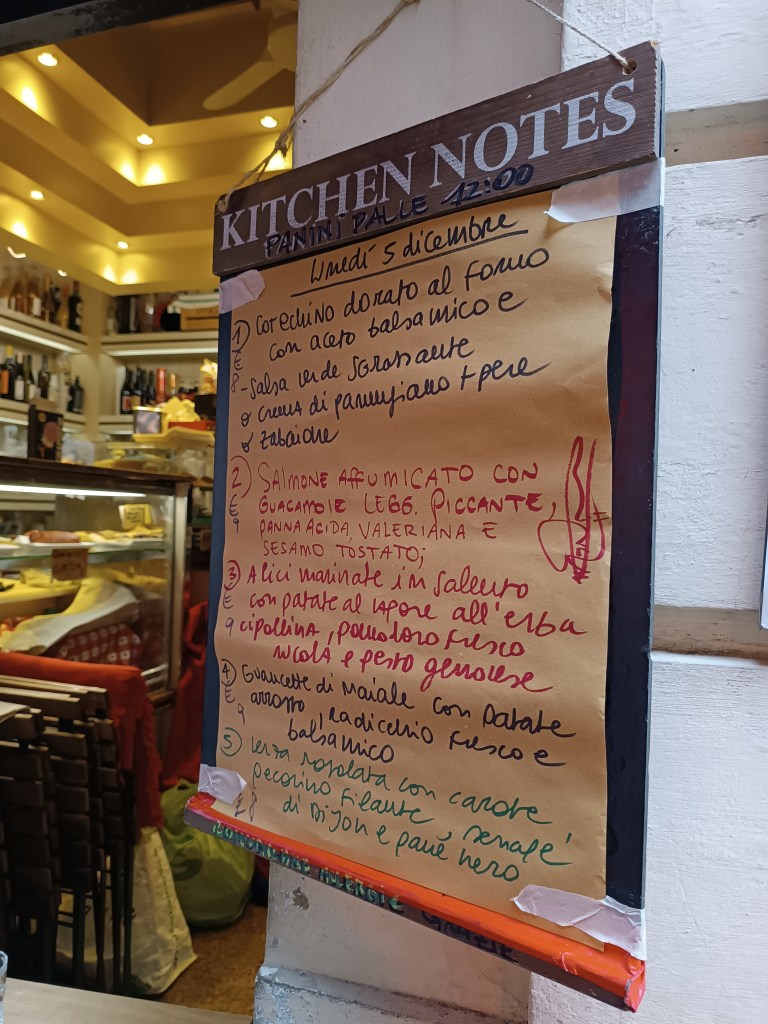 KITCHEN NOTES
PANINI DALLE 12:00
lunedì 5 dicembre
1) Cotechino dorato al forno
€ con aceto balsamico e
8 - salsa verde sgrassante
o crema di parmigiano + pere
o zabaione
2) SALMONE AFFUMICATO CON
€ GUACAMOLE LEGG. PICCANTE,
9 PANNA ACIDA, VALERIANA E
SESAMO TOSTATO;
3) Alici marinate in saluto
€ con patate al vapore all'erba
9 cipollina, pomodoro fresco
rucola e pesto genovese
4) Guancette di maiale con patate
€ arrosto, radicchio fresco e
9 balsamico
5) verza rosolata con carote,
pecorino filante, senape
€8 di Dijon e pane nero
COMUNICARE ALLERGIE GRAZIE